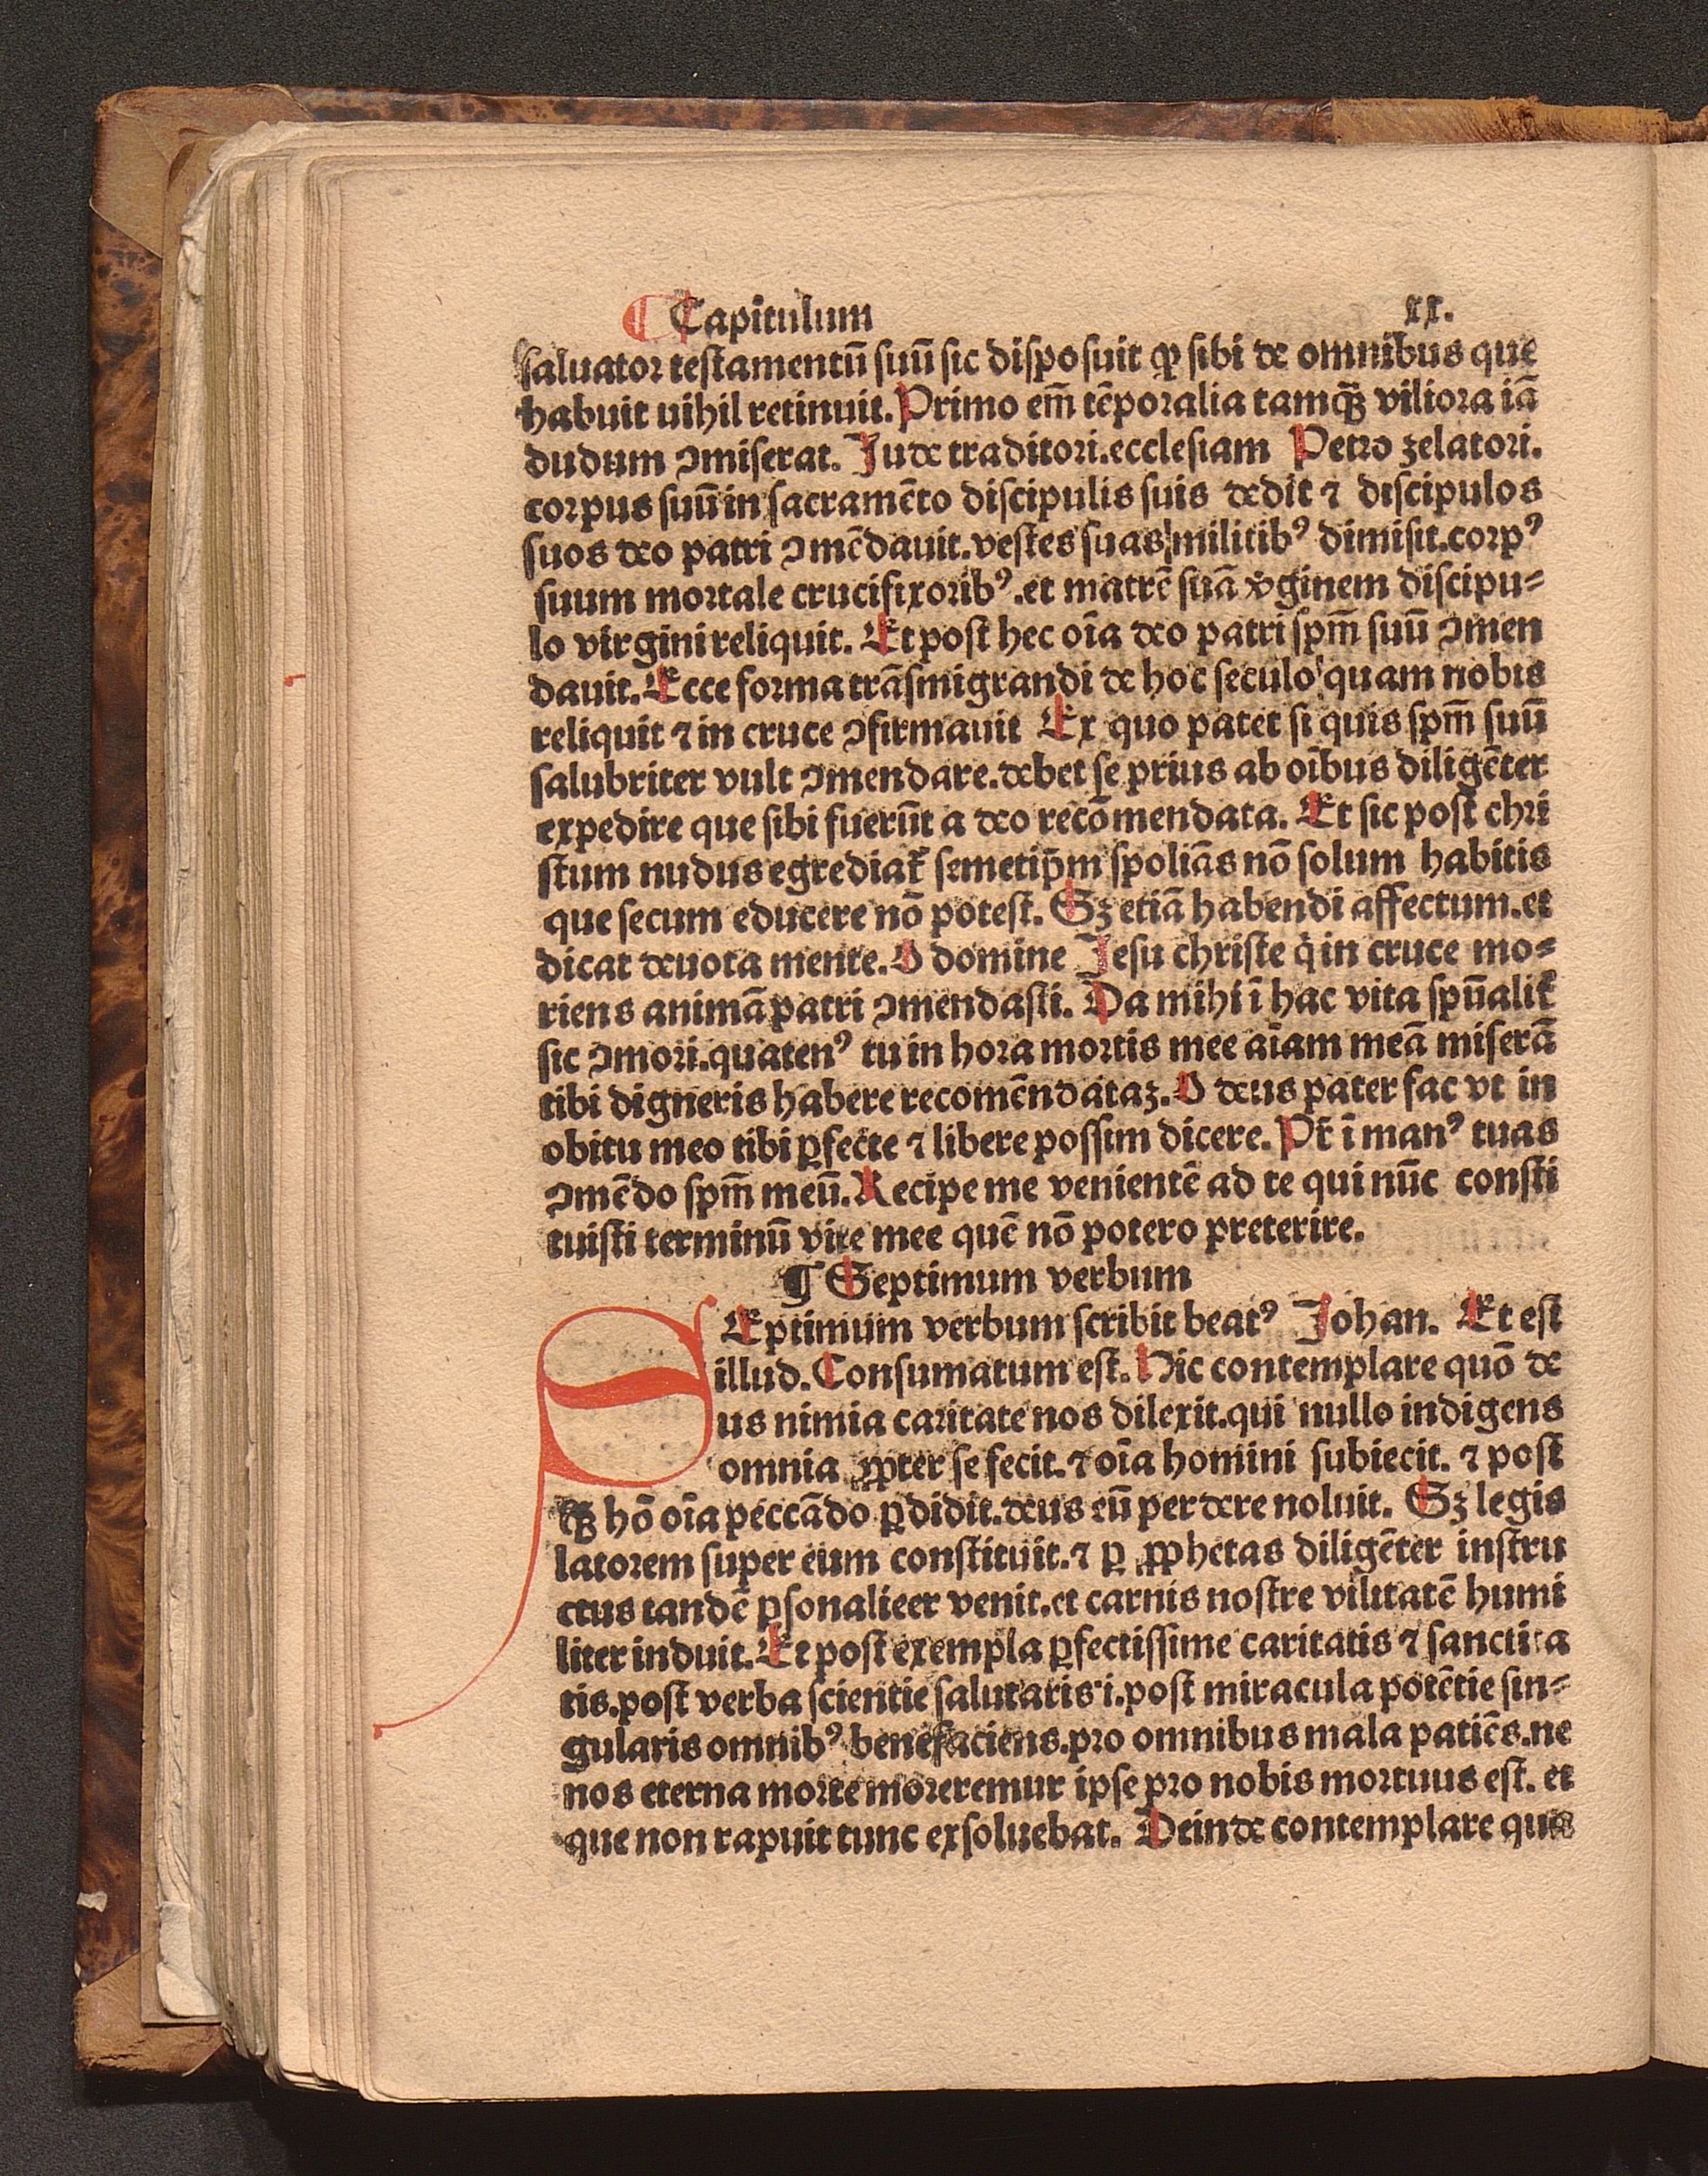 ¶ Capitulum xx.
saluator testamentū suū sic disposuit ꝙ sibi de omnibus que
habuit uihil retinuit. Primo em̄ tēporalia tamqꝫ viliora iā
dudum ꝯmiserat. Jude traditori. ecclesiam Petro zelatori.
corpus suū in sacramēto discipulis suis dedit ⁊ discipulos
suos deo patri ꝯmēdauit. vestes suas militibꝰ dimisit. corpꝰ
suum mortale crucifixoribꝰ. et matrē suā v̓ginem discipu⸗
lo virgini reliquit. Et post hec oīa deo patri spm̄ suū ꝯmen
dauit. Ecce forma trāsmigrandi de hoc seculo quam nobis
reliquit ⁊ in cruce ꝯfirmauit Ex quo patet si quis spm̄ suū
salubriter vult ꝯmendare. debet se prius ab oībus diligēter
expedire que sibi fuerūt a deo recōmendata. Et sic post chri
stum nudus egrediat᷑ semetip̄m spoliās nō solum habitis
que secum educere nō potest. Sꝫ etiā habendi affectum. et
dicat deuota mente. O domine Jesu christe q̇ in cruce mo⸗
riens animā patri ꝯmendasti. Da mihi ī hac vita spūalit᷑
sic ꝯmori. quatenꝰ tu in hora mortis mee aīam meā miserā
tibi digneris habere recomēndataꝫ. O deus pater fac vt in
obitu meo tibi ꝑfecte ⁊ libere possim dicere. Pr̄ ī manꝰ tuas
ꝯmēdo spm̄ meū. Recipe me venientē ad te qui nūc consti
tuisti terminū vite mee quē nō potero preterire.
¶ Septimum verbum
SEptimum verbum scribit beatꝰ Johan. Et est
illud. Consumatum est. Hic contemplare quō de
us nimia caritate nos dilexit. qui nullo indigens
omnia ꝓpter se fecit. ⁊ oīa homini subiecit. ⁊ post
qꝫ hō oīa peccādo ꝑdidit. deus eū perdere noluit. Sꝫ legis
latorem super eum constituit. ⁊ ꝑ ꝓphetas diligēter instru
ctus tandē ꝑsonalieer venit. et carnis nostre vilitatē humi
liter induit. Et post exempla ꝑfectissime caritatis ⁊ sanctita
tis. post verba scientie salutaris i. post miracula potētie sin⸗
gularis omnibꝰ benefaciens. pro omnibus mala patiēs. ne
nos eterna morte moreremur ipse pro nobis mortuus est. et
que non rapuit tunc exsoluebat. Deinde contemplare